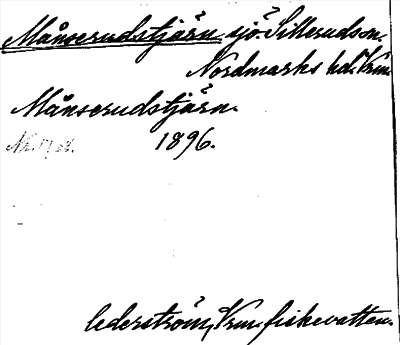 Månserudstjärn, sjö. Sillerudsn.
Nordmarks hd. Vrm.
Månserudstjärn.
1896.
Cederström, Vrm. fiskevatten.